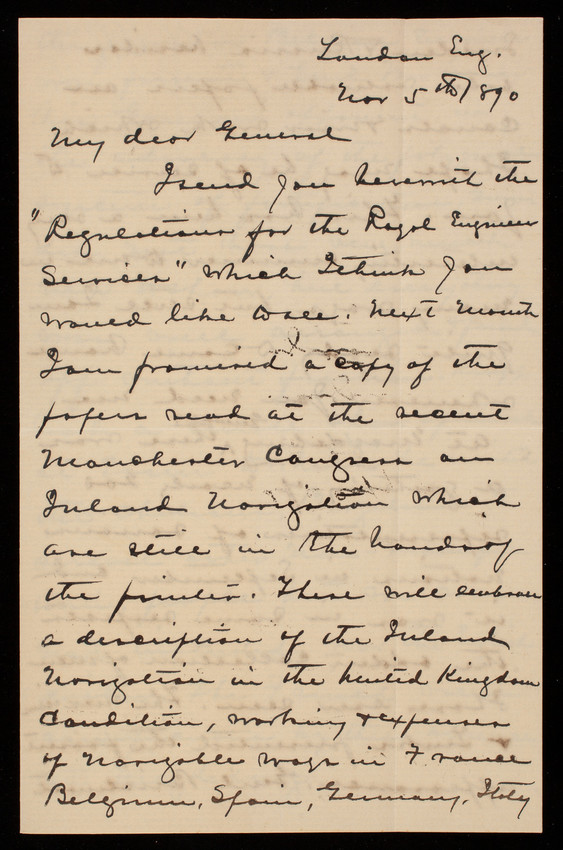 London Eng.
Nov 5th 1890
My dear General
I send you herewith the
"Regulations for the Royal Engineer
Services" which I think you
would like to see. Next month
I am promised a copy of the
papers read at the recent
Manchester Congress on
Inland Navigation which
are still in the hands of
the printer. These will embrace
a description of the Inland
Navigation in the United Kingdom
Condition, working & expenses
of Navigable ways in France
Belgium, Spain, Germany, Italy